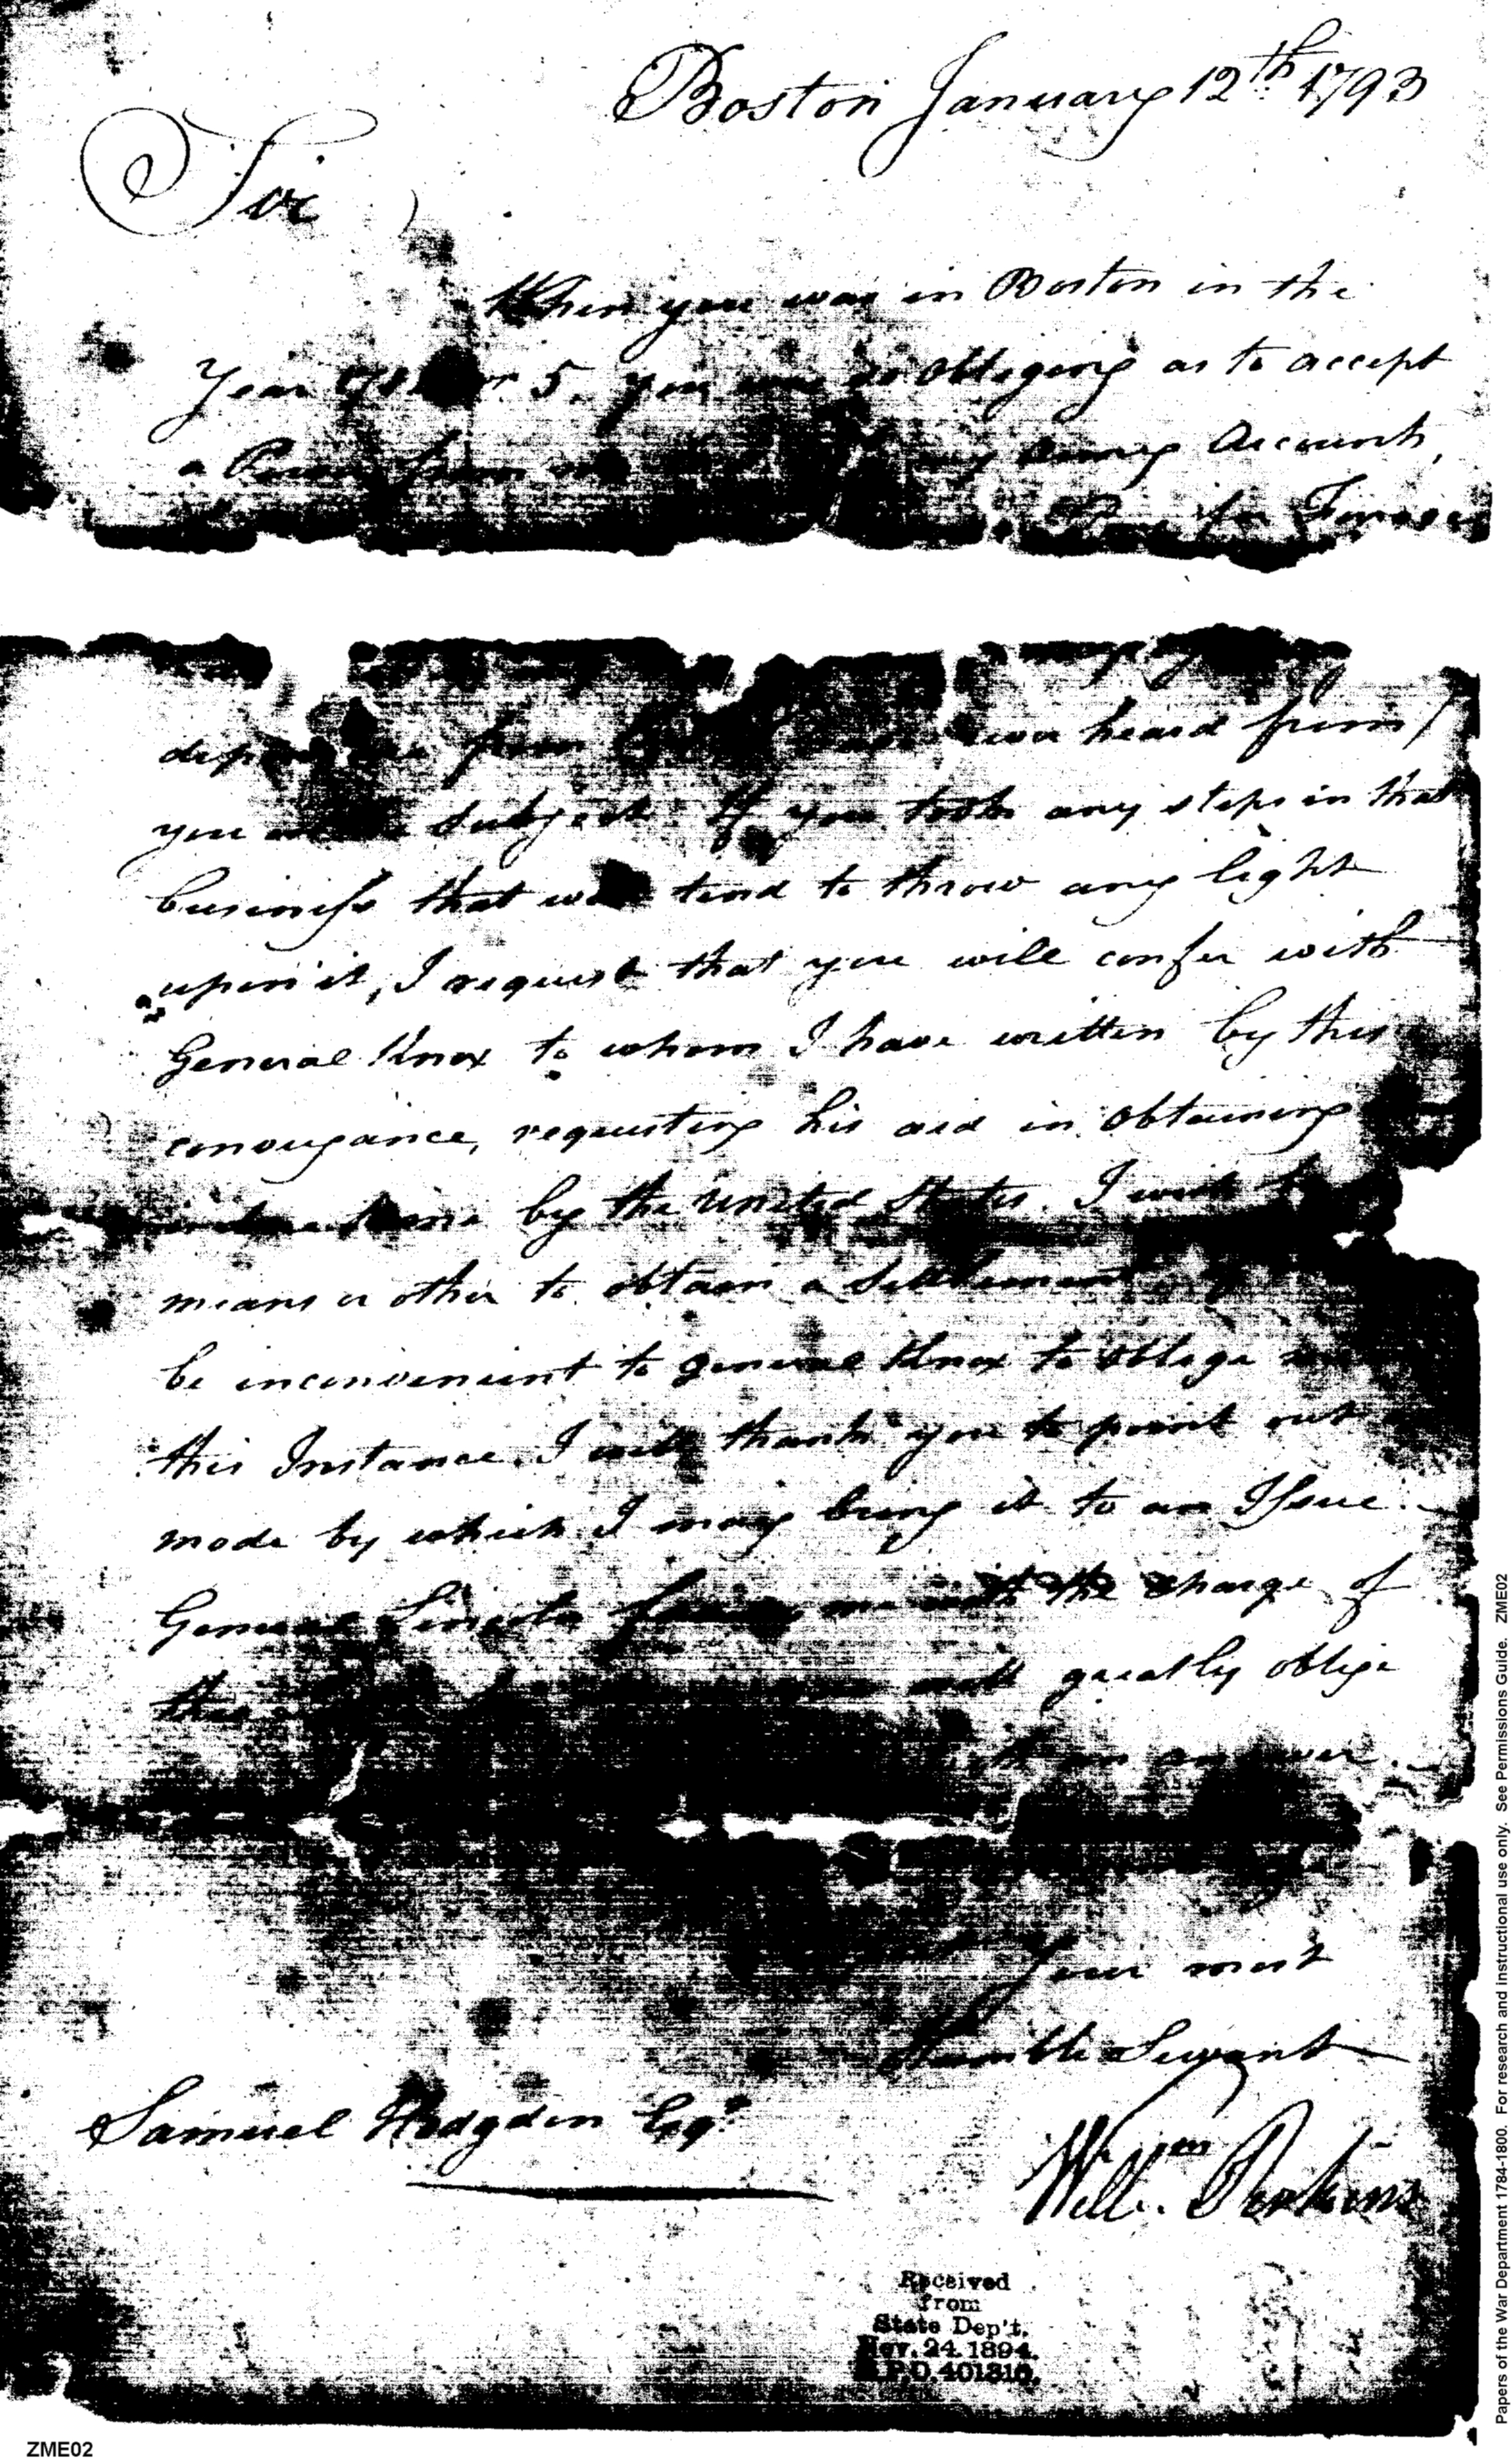 Boston January 12th. 1793
Sir
When you was in Boston in the
Year or 5. you was so obliging as to accept
a Power from my army Accounts,
for
from heard from
you subject. If you took any steps in that
business that will tend to throw any light
upon it, I request that you will confer with
General Knox to whom I have written by this
conveyance, requesting his aid in obtaining
by the United States. I wish
means or other to obtain a Settlement
be inconvenient to general Knox to oblige
this Instance. I will thank you to point out
mode by which I may bring it to an Issue.
General Lincoln me with the charge of
this will greatly oblige
an answer.
Your most
Humble Servant
Samuel Hodgdon Esqr.
Willm. Perkins
Received
from
State Dep't.
Nov. 24. 1894.
R.P.D. 401316.
ZME02
Papers of the War Department 1784-1800. For research and instructional use only. See Permissions Guide. ZME02